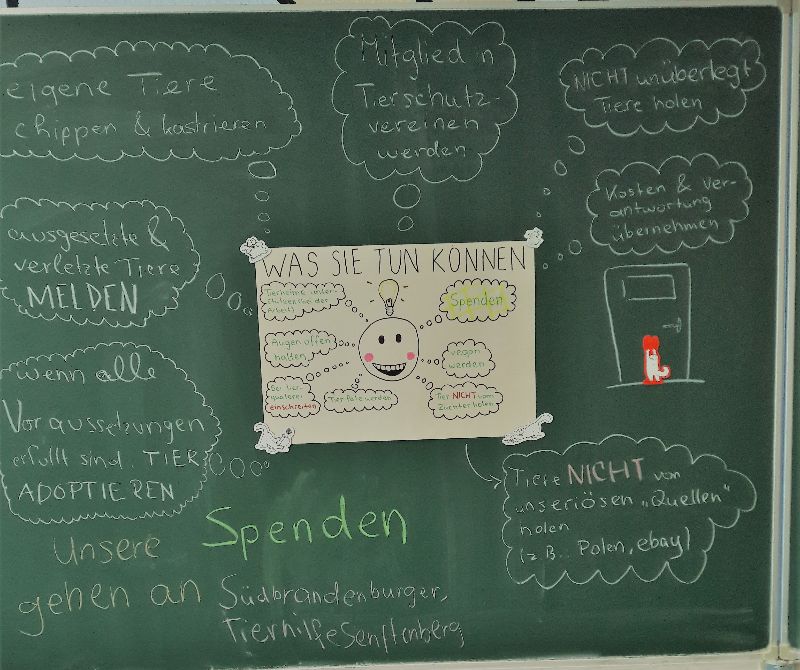 eigene Tiere
chippen & kastrieren
Mitglied in
Tierschutz-
vereinen
werden
NICHT unüberlegt
Tiere holen
Kosten & Ver-
antwortung
übernehmen
ausgesetzte &
verletzte Tiere
MELDEN
WAS SIE TUN KÖNNEN
Tierheime unter-
stützen (bei der
Arbeit)
Spenden
Augen offen
halten
vegan
werden
Bei Tier-
quälerei
einschreiten
Tierpate werden
Tier NICHT vom
Züchter holen
wenn alle
Voraussetzungen
erfüllt sind, TIER
ADOPTIEREN
Tiere NICHT von
unseriösen „Quellen"
holen
(z.B.. Polen, ebay)
Unsere Spenden
gehen an Südbrandenburger,
Tierhilfe Senftenberg